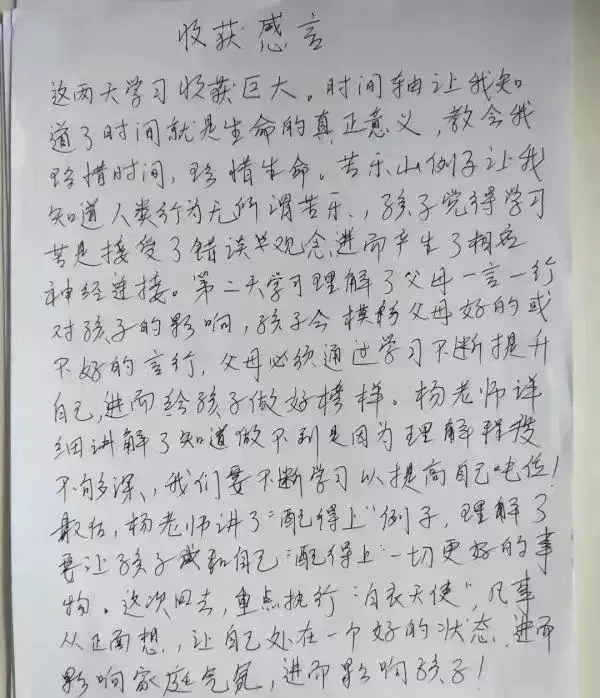 收获感言
这两天学习收获巨大。时间轴让我知
道了时间就是生命的真正意义，教会我
珍惜时间，珍惜生命。苦乐山例子让我
知道人类行为无所谓苦乐，孩子觉得学习
苦是接受了错误观念进而产生了相应
神经连接。第二天学习理解了父母一言一行
对孩子的影响，孩子会模仿父母好的或
不好的言行，父母必须通过学习不断提升
自己，进而给孩子做好榜样。杨老师详
细讲解了知道做不到是因为理解程度
不够深，我们要不断学习以提高自己吨位！
最后，杨老师讲了“配得上”例子，理解了
要让孩子感到自己“配得上”一切更好的事
物。这次回去，重点执行“白衣天使”，凡事
从正面想，让自己处在一个好的状态，进而
影响家庭气氛，进而影响孩子！